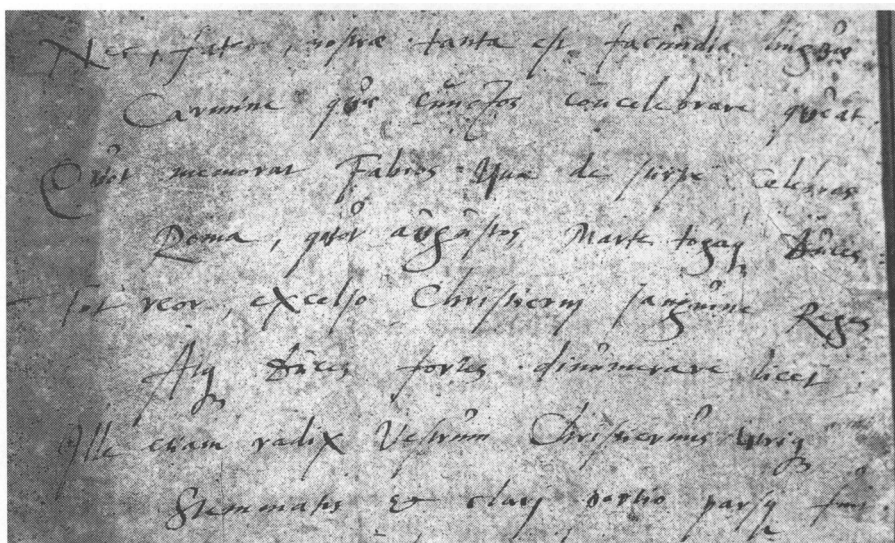 Nec, fateor, nostræ tanta est facundia linguæ
Carmine quæ cunctos concelebrare queat.
Quot memorat Fabios una de stirpe celebres
Roma, quot augustos Marte togaq3 Duces.
Tot reor, excelso Christierni sanguine Reges
Atq3 Duces fortes dinumerare licet
Ille etiam radix Vestrum Christiernus utriq3
Stemmatis & clari portio parsq3 fuit